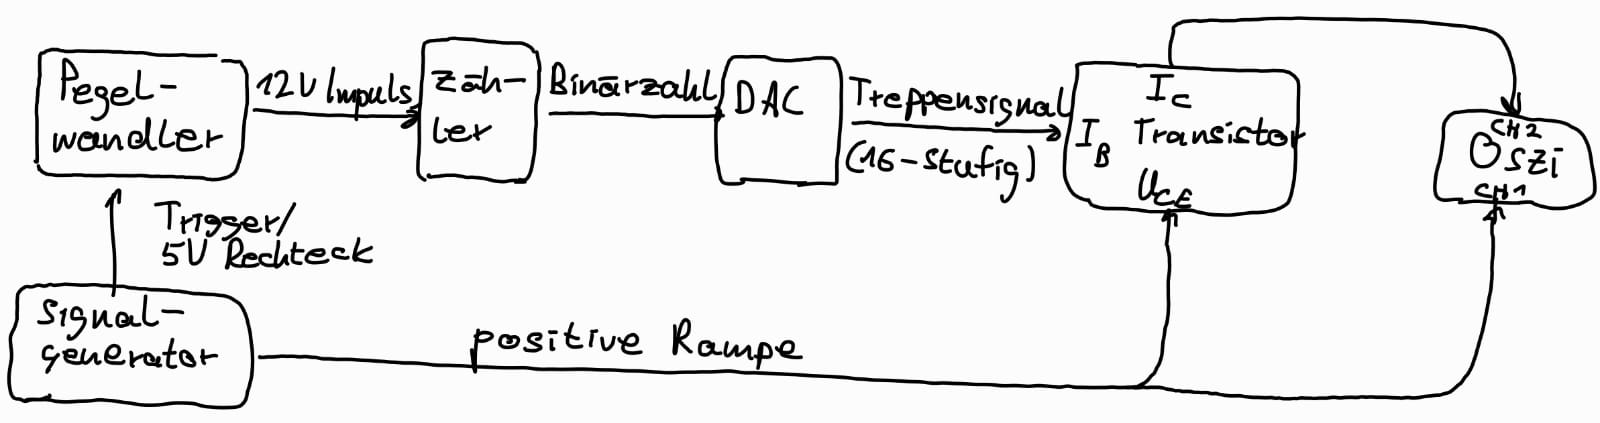 Pegel-
wandler
12V Impuls
Zäh-
ler
Binärzahl
DAC
Treppensignal
(16-stufig)
I_C
I_B Transistor
U_CE
CH2
Oszi
CH1
Trigger/
5V Rechteck
Signal-
generator
positive Rampe